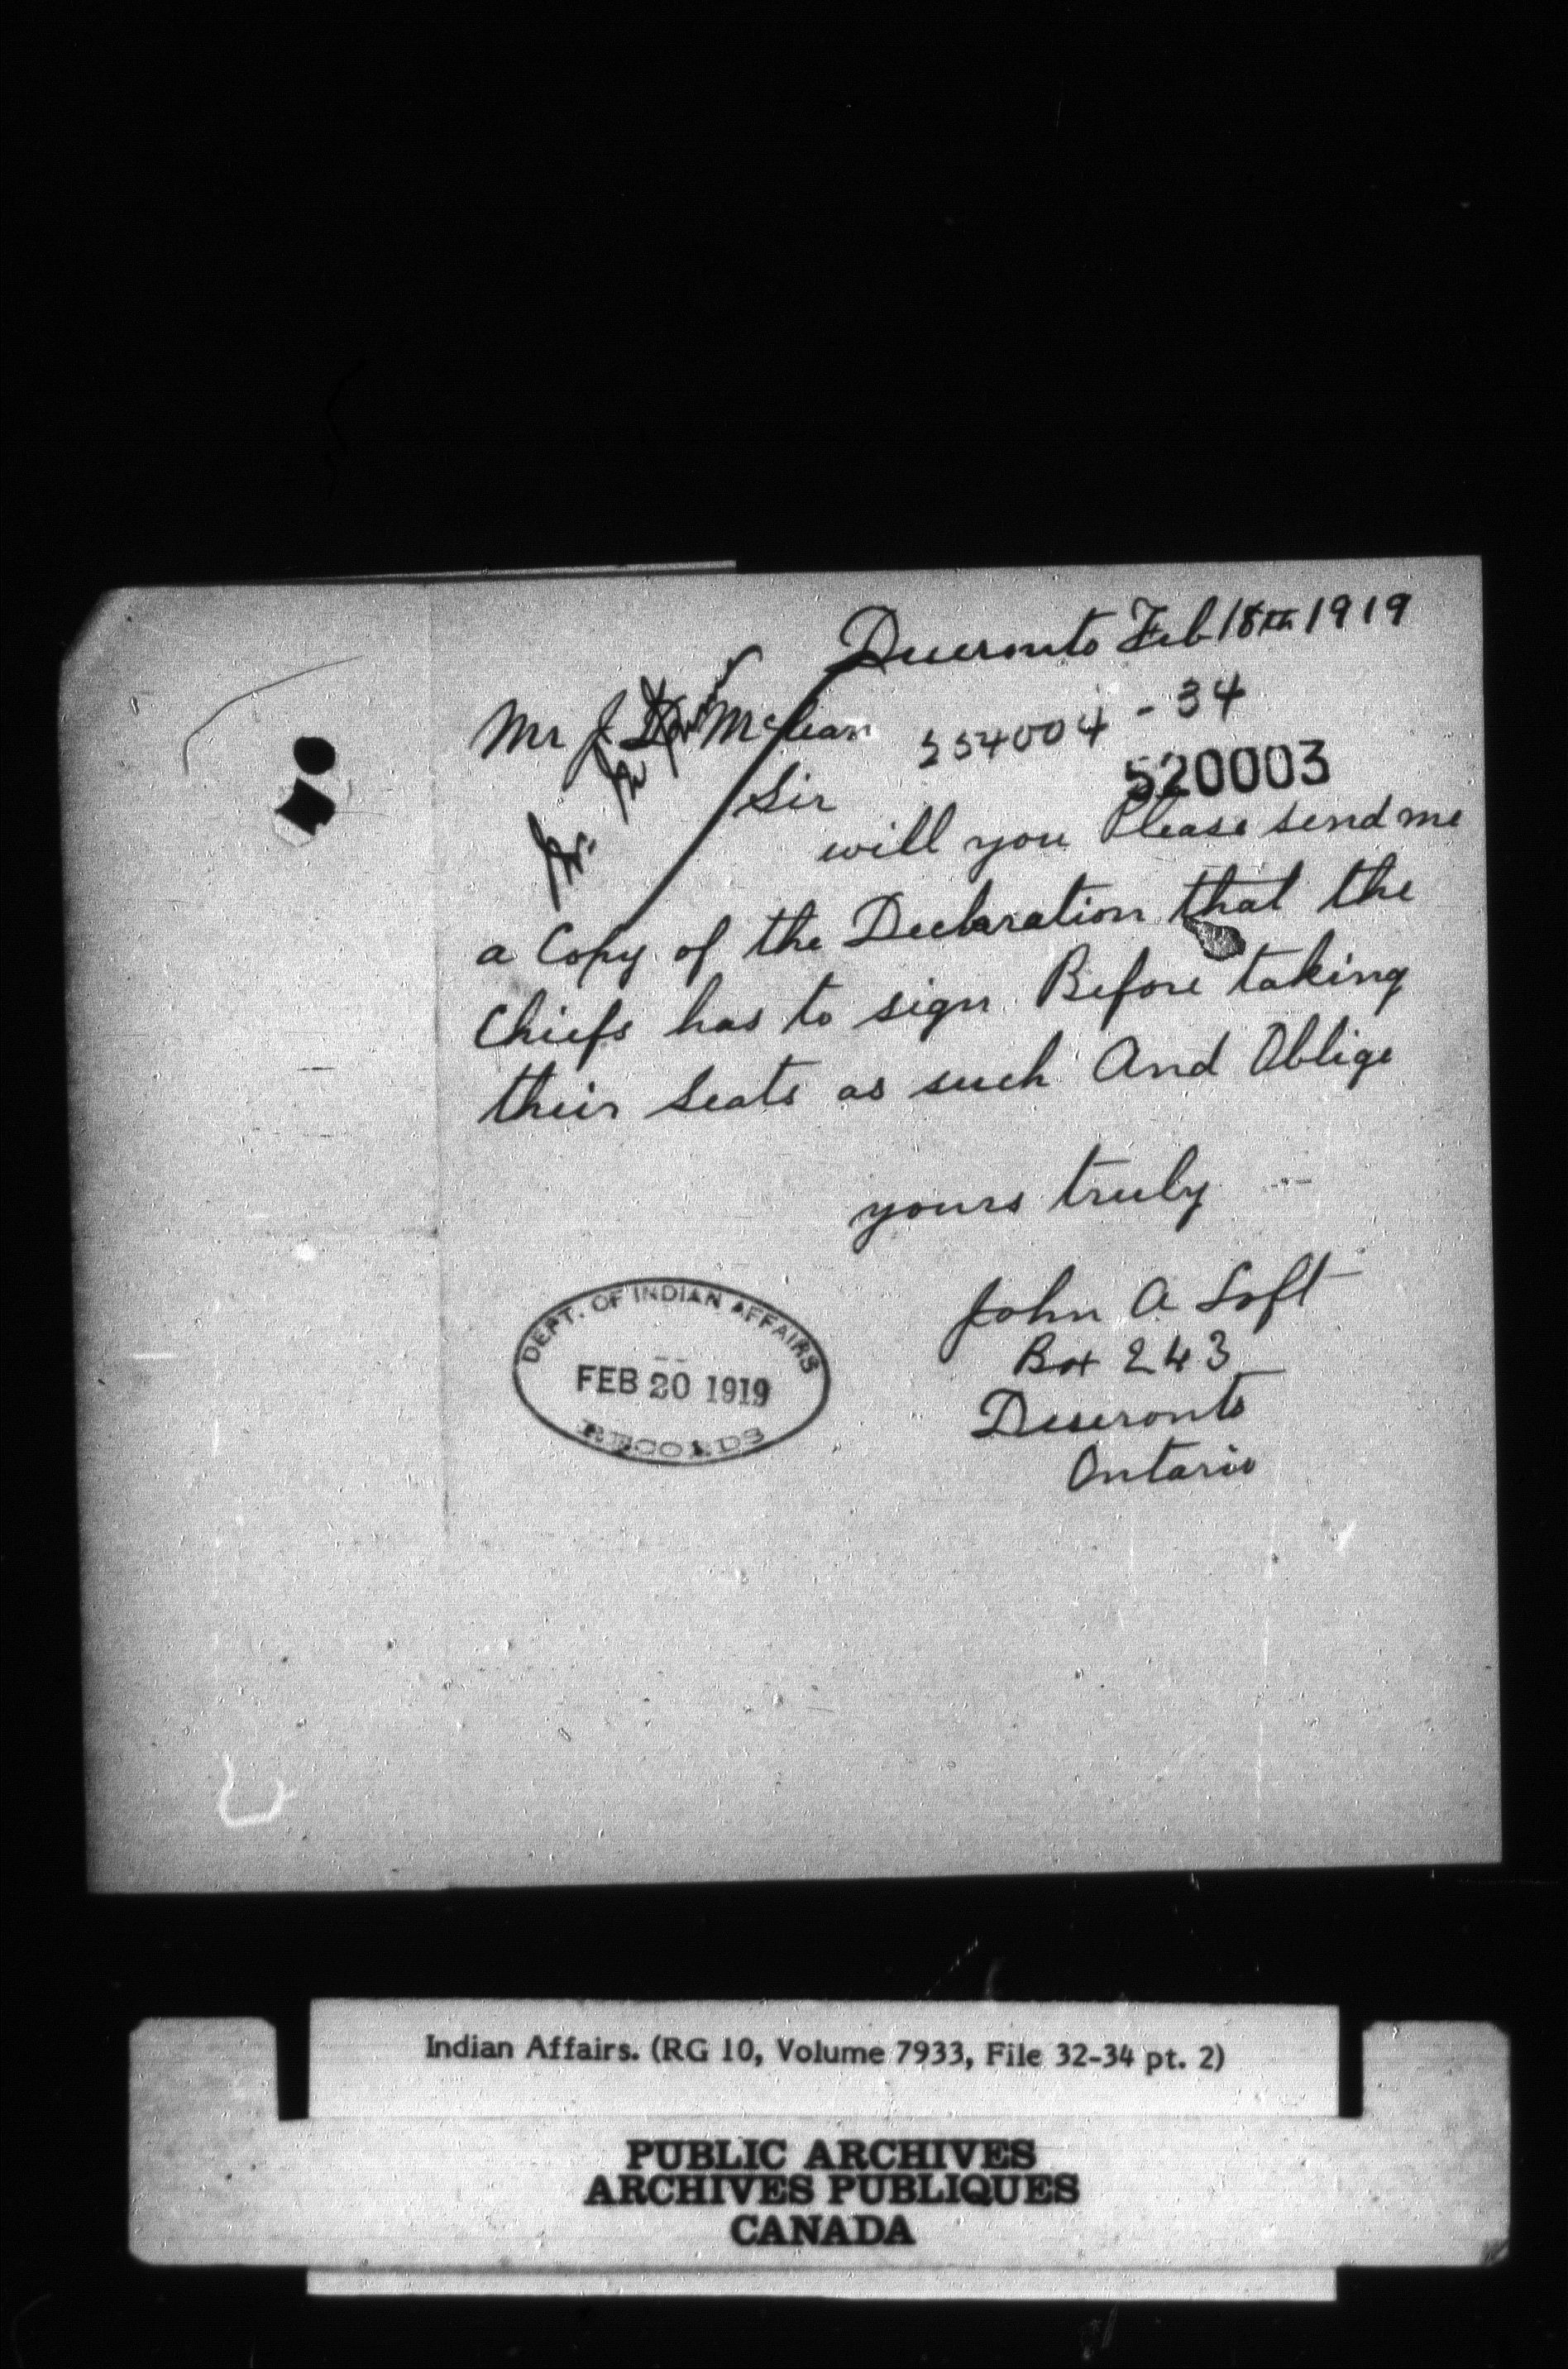 Deseronto Feb 18th 1919
Mr J. D. McLean
254004 - 34
520003
Sir
will you Please send me
a Copy of the Declaration that the
Chiefs has to sign Before taking
their Seats as such And Oblige
yours truly
John A Loft
Box 243
Deseronto
Ontario
DEPT. OF INDIAN AFFAIRS
FEB 20 1919
RECORDS
Indian Affairs. (RG 10, Volume 7933, File 32-34 pt. 2)
PUBLIC ARCHIVES
ARCHIVES PUBLIQUES
CANADA